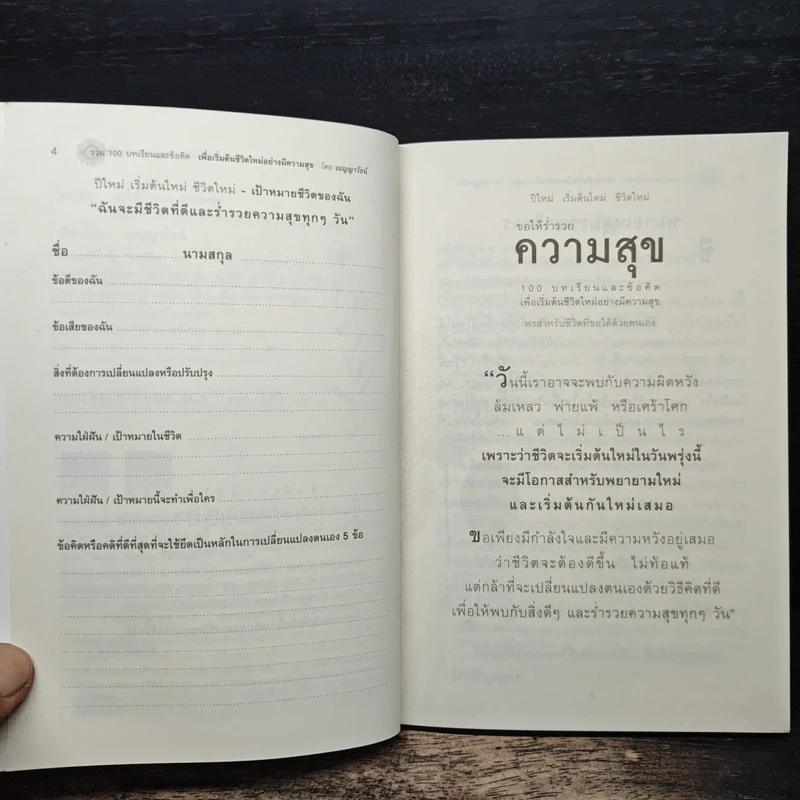 4 รวม 100 บทเรียนและข้อคิด เพื่อเริ่มต้นชีวิตใหม่อย่างมีความสุข โดย เมญญาวัธน์
ปีใหม่ เริ่มต้นใหม่ ชีวิตใหม่ - เป้าหมายชีวิตของฉัน
“ฉันจะมีชีวิตที่ดีและร่ำรวยความสุขทุกๆ วัน”
ชื่อ นามสกุล
ข้อดีของฉัน
ข้อเสียของฉัน
สิ่งที่ต้องการเปลี่ยนแปลงหรือปรับปรุง
ความใฝ่ฝัน / เป้าหมายในชีวิต
ความใฝ่ฝัน / เป้าหมายนี้จะทำเพื่อใคร
ข้อคิดหรือคติที่ดีที่สุดที่จะใช้ยึดเป็นหลักในการเปลี่ยนแปลงตนเอง 5 ข้อ
ปีใหม่ เริ่มต้นใหม่ ชีวิตใหม่
ขอให้ร่ำรวย
ความสุข
100 บทเรียนและข้อคิด
เพื่อเริ่มต้นชีวิตใหม่อย่างมีความสุข
พรสำหรับชีวิตที่ขอได้ด้วยตนเอง
“วันนี้เราอาจจะพบกับความผิดหวัง
ล้มเหลว พ่ายแพ้ หรือเศร้าโศก
...แต่ไม่เป็นไร
เพราะว่าชีวิตจะเริ่มต้นใหม่ในวันพรุ่งนี้
จะมีโอกาสสำหรับพยายามใหม่
และเริ่มต้นกันใหม่เสมอ
ขอเพียงมีกำลังใจและมีความหวังอยู่เสมอ
ว่าชีวิตจะต้องดีขึ้น ไม่ท้อแท้
แต่กล้าที่จะเปลี่ยนแปลงตนเองด้วยวิธีคิดที่ดี
เพื่อให้พบกับสิ่งดีๆ และร่ำรวยความสุขทุกๆ วัน”
5